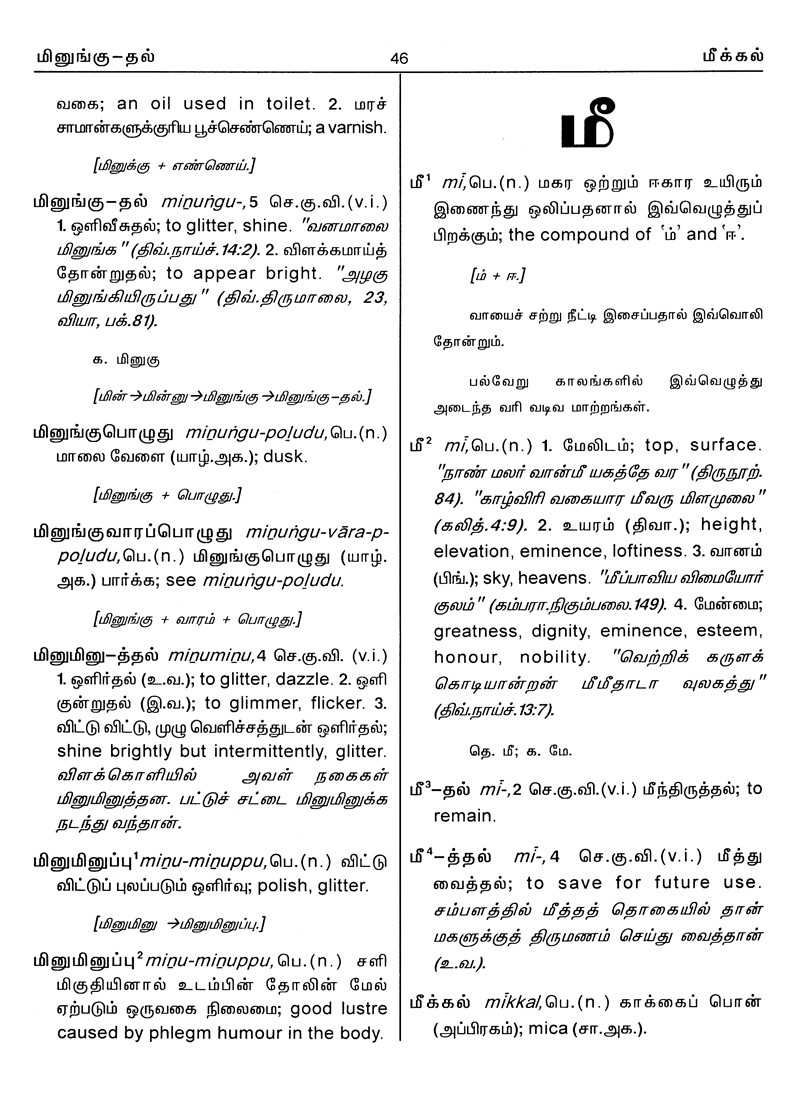 மினுங்கு–தல்
46
மீக்கல்
வகை; an oil used in toilet. 2. மரச்
சாமான்களுக்குரிய பூச்செண்ணெய்; a varnish.
[மினுக்கு + எண்ணெய்.]
மினுங்கு–தல் miṉuṅgu-, 5 செ.கு.வி.(v.i.)
1. ஒளிவீசுதல்; to glitter, shine. "வனமாலை
மினுங்க" (திவ்.நாய்ச்.14:2). 2. விளக்கமாய்த்
தோன்றுதல்; to appear bright. "அழகு
மினுங்கியிருப்பது" (திவ்.திருமாலை, 23,
வியா, பக்.81).
க. மினுகு
[மின்→மின்னு→மினுங்கு→மினுங்கு–தல்.]
மினுங்குபொழுது miṉuṅgu-poḻudu,பெ.(n.)
மாலை வேளை (யாழ்.அக.); dusk.
[மினுங்கு + பொழுது.]
மினுங்குவாரப்பொழுது miṉuṅgu-vāra-p-
poḻudu,பெ.(n.) மினுங்குபொழுது (யாழ்.
அக.) பார்க்க; see miṉuṅgu-poḻudu.
[மினுங்கு + வாரம் + பொழுது.]
மினுமினு–த்தல் miṉumiṉu,4 செ.கு.வி. (v.i.)
1. ஒளிர்தல் (உ.வ.); to glitter, dazzle. 2. ஒளி
குன்றுதல் (இ.வ.); to glimmer, flicker. 3.
விட்டு விட்டு, முழு வெளிச்சத்துடன் ஒளிர்தல்;
shine brightly but intermittently, glitter.
விளக்கொளியில் அவள் நகைகள்
மினுமினுத்தன. பட்டுச் சட்டை மினுமினுக்க
நடந்து வந்தான்.
மினுமினுப்பு¹ miṉu-miṉuppu,பெ.(n.) விட்டு
விட்டுப் புலப்படும் ஒளிர்வு; polish, glitter.
[மினுமினு →மினுமினுப்பு.]
மினுமினுப்பு² miṉu-miṉuppu,பெ.(n.) சளி
மிகுதியினால் உடம்பின் தோலின் மேல்
ஏற்படும் ஒருவகை நிலைமை; good lustre
caused by phlegm humour in the body.
மீ
மீ¹ mī,பெ.(n.) மகர ஒற்றும் ஈகார உயிரும்
இணைந்து ஒலிப்பதனால் இவ்வெழுத்துப்
பிறக்கும்; the compound of ‘ம்’ and ‘ஈ’.
[ம் + ஈ.]
வாயைச் சற்று நீட்டி இசைப்பதால் இவ்வொலி
தோன்றும்.
பல்வேறு காலங்களில் இவ்வெழுத்து
அடைந்த வரி வடிவ மாற்றங்கள்.
மீ² mī,பெ.(n.) 1. மேலிடம்; top, surface.
"நாண் மலர் வான்மீ யகத்தே வர" (திருநூற்.
84). "காழ்விரி வகையார மீவரு மிளமுலை"
(கலித்.4:9). 2. உயரம் (திவா.); height,
elevation, eminence, loftiness. 3. வானம்
(பிங்.); sky, heavens. "மீப்பாவிய விமையோர்
குலம்" (கம்பரா.நிகும்பலை.149). 4. மேன்மை;
greatness, dignity, eminence, esteem,
honour, nobility. "வெற்றிக் கருளக்
கொடியான்றன் மீமீதாடா வுலகத்து"
(திவ்.நாய்ச்.13:7).
தெ. மீ; க. மே.
மீ³–தல் mī-,2 செ.கு.வி.(v.i.) மீந்திருத்தல்; to
remain.
மீ⁴–த்தல் mī-,4 செ.கு.வி.(v.i.) மீத்து
வைத்தல்; to save for future use.
சம்பளத்தில் மீத்தத் தொகையில் தான்
மகளுக்குத் திருமணம் செய்து வைத்தான்
(உ.வ.).
மீக்கல் mīkkal,பெ.(n.) காக்கைப் பொன்
(அப்பிரகம்); mica (சா.அக.).